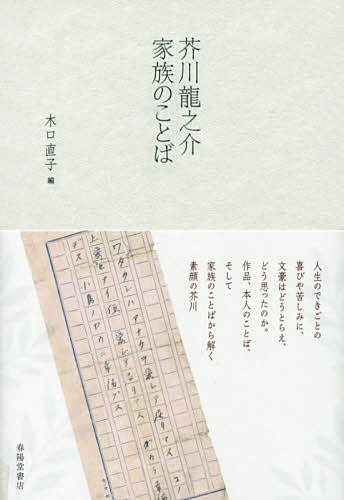 芥川龍之介
家族のことば
木口直子 編
人生のできごとの
喜びや苦しみに、
文豪はどうとらえ、
どう思ったのか。
作品、本人のことば、
そして
家族のことばから解く
素顔の芥川
ワタクシハアナタヲ愛シテ居リマス コノ
上愛セナイ位 愛シテ居リマス ダカラ幸福
デス 小鳥ノヤウニ幸福デス
春陽堂書店